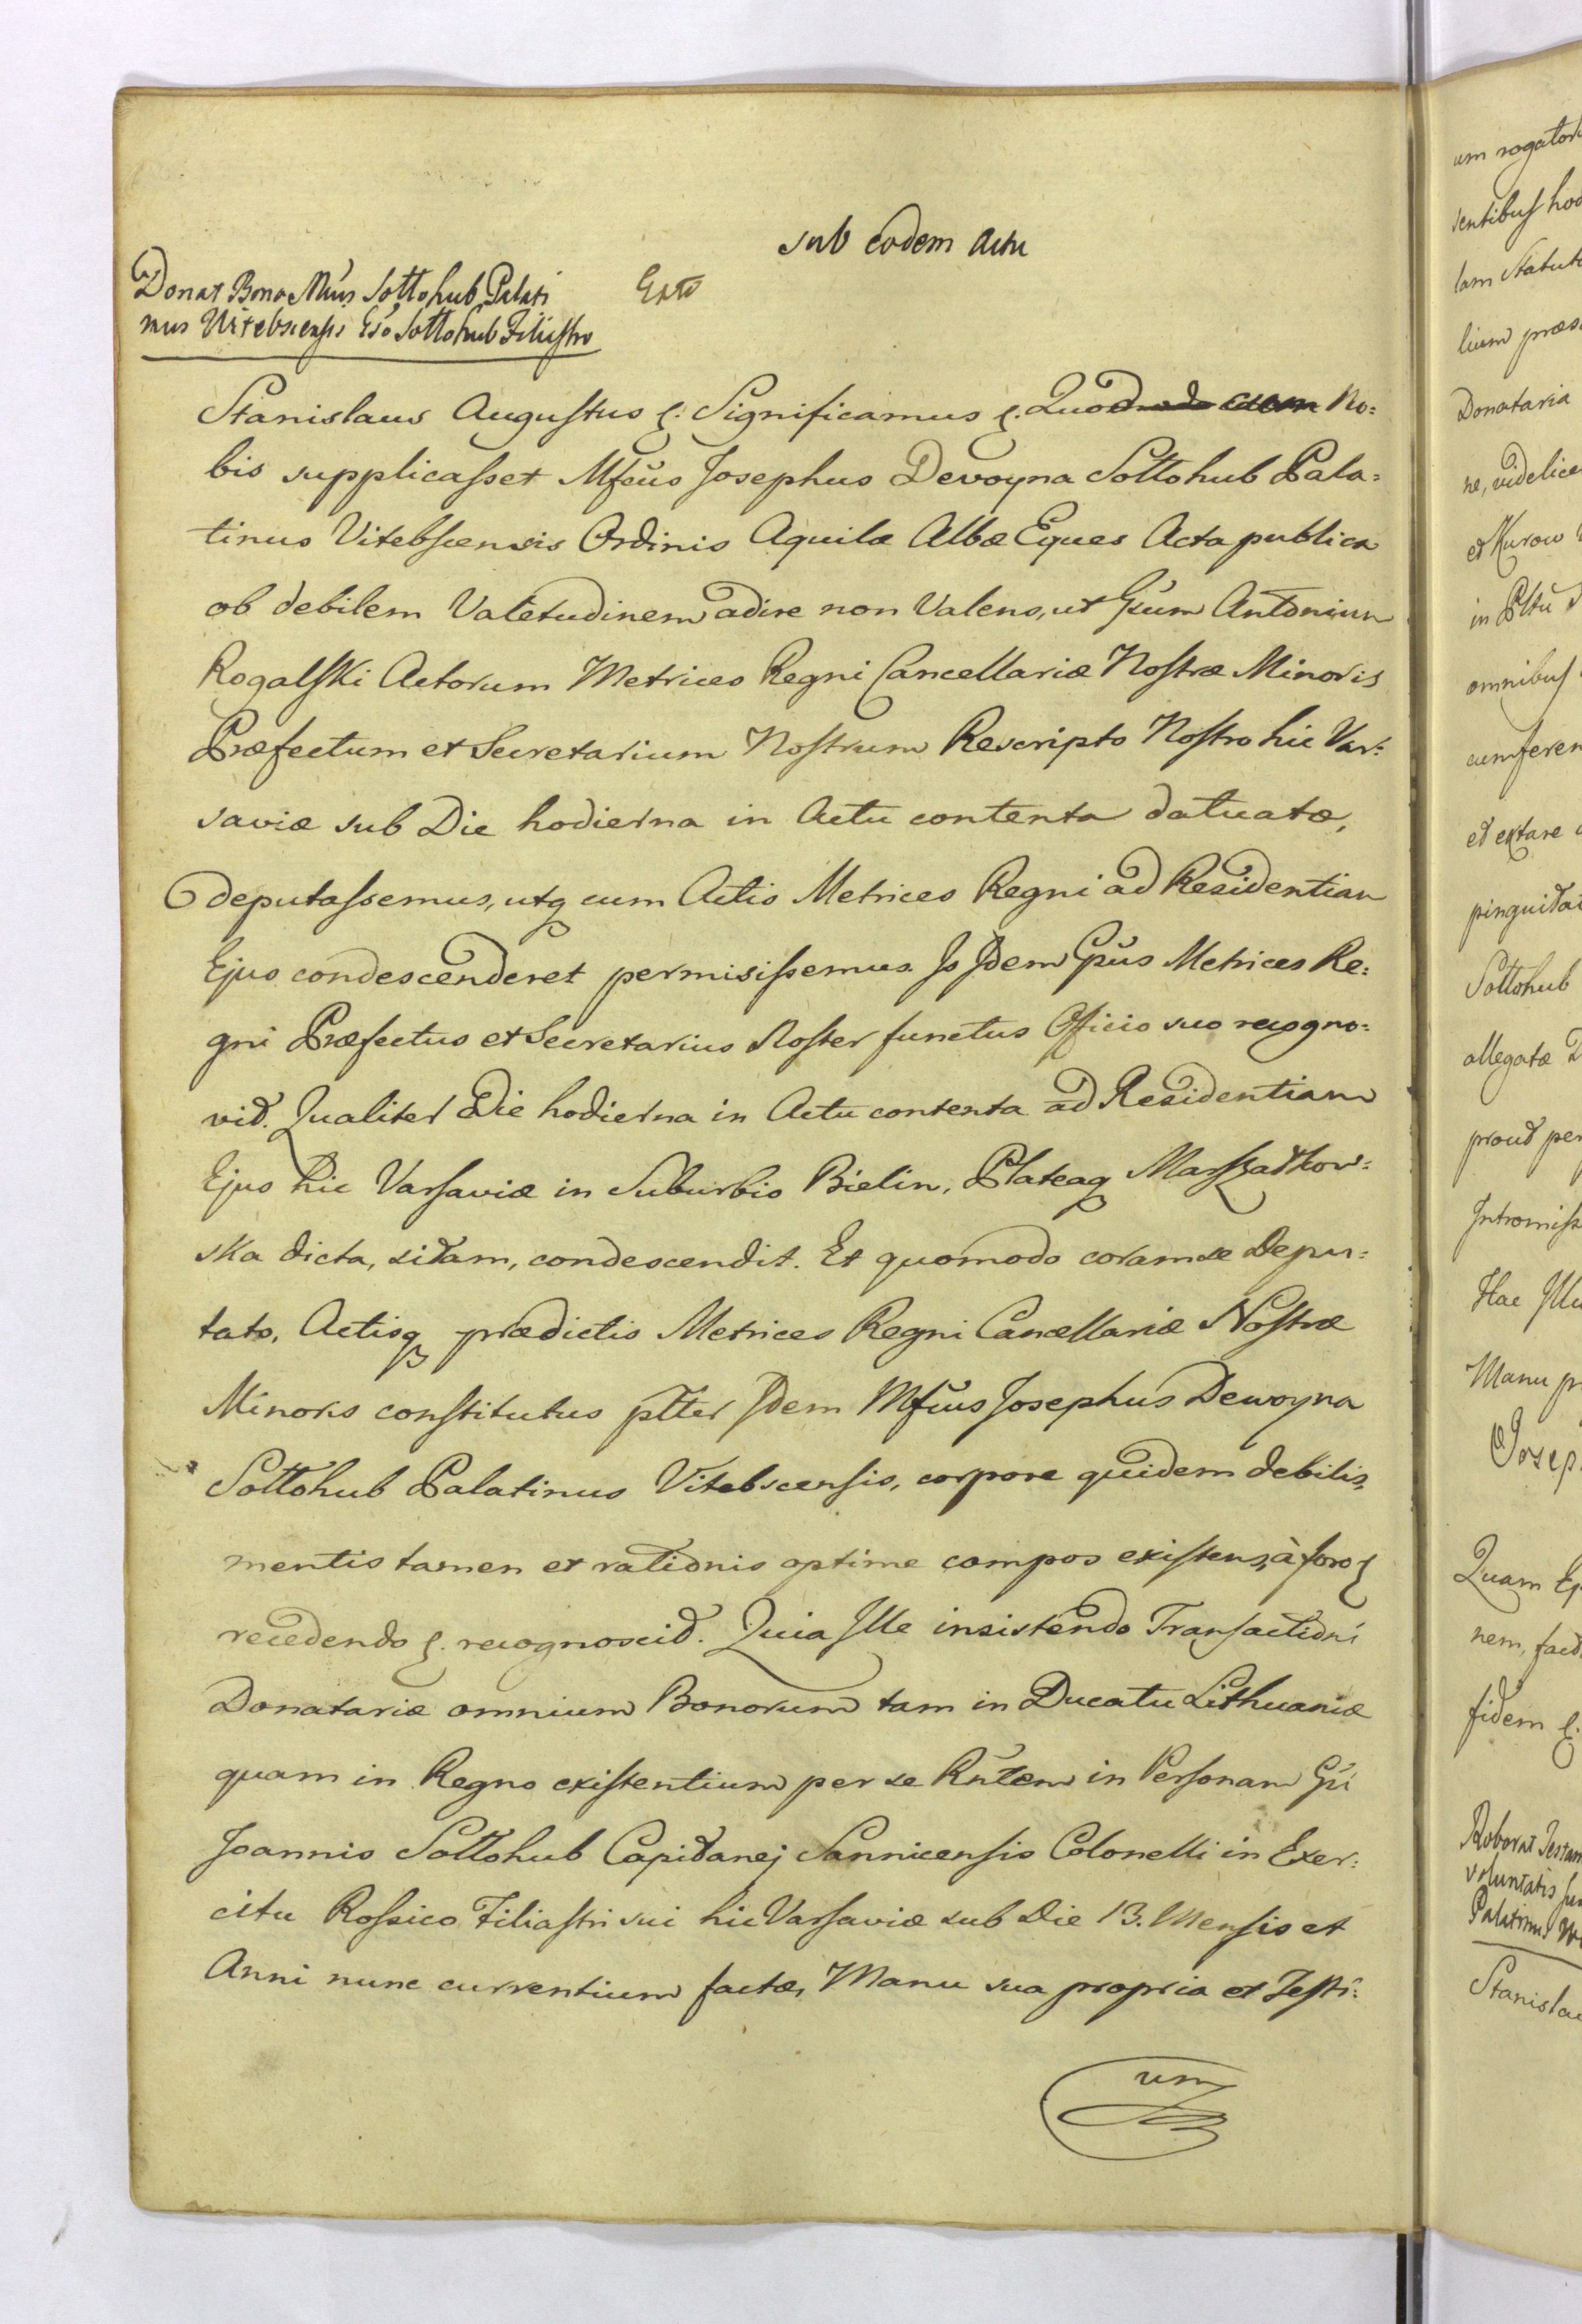 sub eodem Actu
Donat Bona Mfús Sołłohub Palati
nus Vitebscensis Gso Sołłohub Filiastro
Extō
Stanislaus Augustus &: Significamus &. Quod No=
bis supplicasset Mfcūs Josephus Devoyna Sołłohub Pala=
tinus Vitebscensis Ordinis Aquilæ Albæ Eques Acta publica
ob debilem Valetudinem adire non Valens, ut Gsum Antonium
Rogalski Actorum Metrices Regni Cancellariæ Nostræ Minoris
Præfectum et Secretarium Nostrum Rescripto Nostro hic Var=
saviæ sub Die hodierna in Actu contenta datuato,
deputassemus, utq cum Actis Metrices Regni ad Residentiam
Ejus condescenderet permisissemus. Is Idem Gsūs Metrices Re=
gni Præfectus et Secretarius Noster functus Officio suo recogno=
vit. Qualiter Die hodierna in Actu contenta ad Residentiam
Ejus hic Varsaviæ in Suburbio Bielin, Plateaq Marszałkow=
ska dicta, sitam, condescendit. Et quomodo coram se Depu=
tato, Actisq prædictis Metrices Regni Cancellariæ Nostræ
Minoris constitutus pltter Idem Mfcūs Josephus Dewoyna
Sołłohub Palatinus Vitebscensis, corpore quidem debilis,
mentis tamen et rationis optime compos existens, à foro &
recedendo &. recognoscit. Quia Ille insistendo Transactioni
Donatariæ omnium Bonorum tam in Ducatu Lithuaniæ
quam in Regno existentium per se Rntem in Personam Gsi
Joannis Sołłohub Capitanej Sannicensis Colonelli in Exer=
citu Rossico Filiastri sui hic Varsaviæ sub Die 13. Mensis et
Anni nunc currentium factæ, Manu sua propria et Testi=
um
um rogator
sentibus hoc
lam Statut
lium præs
Donataria
ne, videlice
et Kurow
in Pltū
omnibus
cumferen
et extare
pinguita
Sołłohub
allegatæ
prout per
Intromiss
Hac Illu
Manu p
Josep
Quam
nem, fact
fidem &.
Roborat Testam
voluntatis su
Palatinus
Stanislau